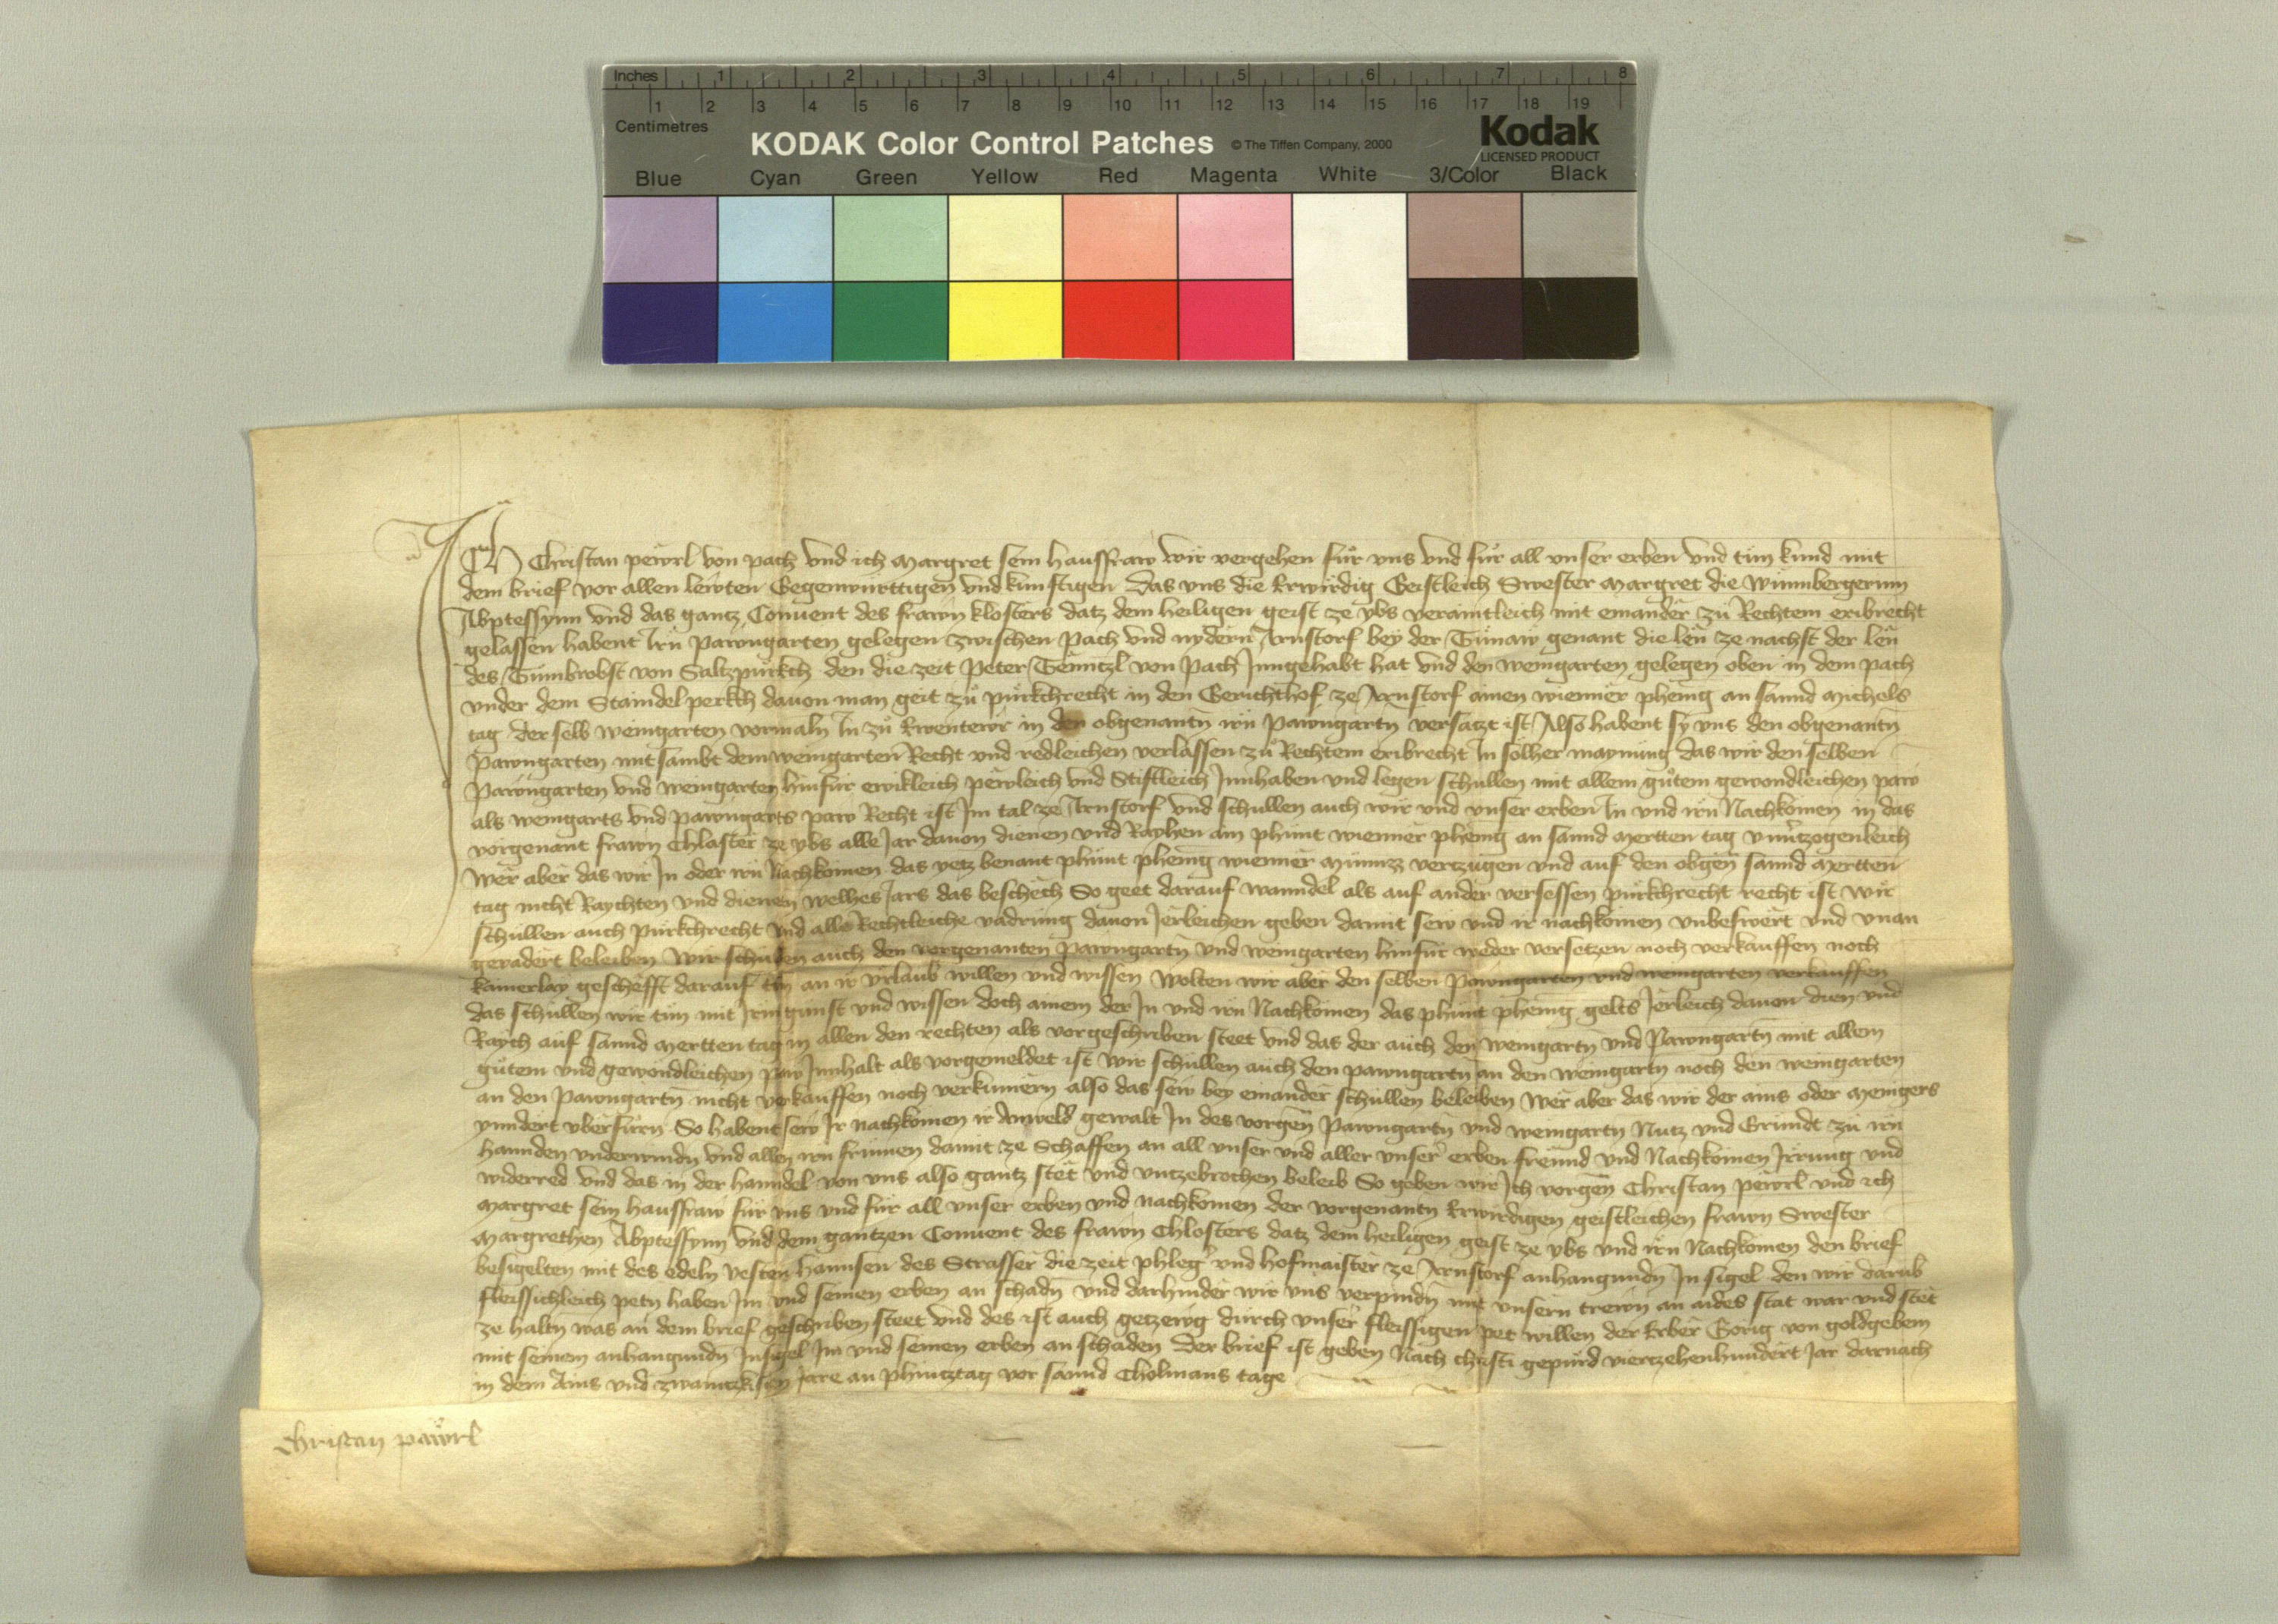 Inches 1 2 3 4 5 6 7 8
1 2 3 4 5 6 7 8 9 10 11 12 13 14 15 16 17 18 19
Centimetres
KODAK Color Control Patches © The Tiffen Company, 2000 Kodak
LICENSED PRODUCT
Blue Cyan Green Yellow Red Magenta White 3/Color Black
Ich Christan pewrl von pach vnd ich Margret sein hausfraw wir vergehen fur vns vnd fur all vnser erben vnd tun kund mit
dem brief vor allen lewten Gegenwurttigen vnd kunftigen Das vns die Erwirdig Geistleich Swester Margret die Winnbergerinn
Abptessynn vnd das gantz Conuent des frawn klosters datz dem heiligen geist ze ybs veraintleich mit einander zu Rechtem eribrecht
gelassen habent irn Pawngarten gelegen zwischen Pach vnd nydern Arnstorf bey der Tunaw genant die len ze nachst der len
des Tumbrobst von Saltzpurkch den die zeit Peter Tenntzl von Pach Inngehabt hat vnd den weingarten gelegen oben in dem pach
vnder dem Staindelperkh dauon man geit zu purkchrecht in den Gerichthof ze Arnstorf ainen wienner phenig an sannd Michels
tag der selb weingarten vormaln In zu in der obgenantn irn Pawngartn versatzt ist Also habent sy vns den obgenantn
Pawngarten mitsambt dem weingarten Recht vnd redleichen verlassen zu Rechtem eribrecht In solher maynung das wir den selben
Pawngarten vnd weingarten hinfur ewikleich pewleich vnd Stiftleich Innhaben vnd legen schullen mit allem gutem gewondleichen paw
als weingarts vnd pawngarts paw Recht ist Im tal ze Arnstorf vnd schullen auch wir vnd vnser erben In vnd irn Nachkomen in das
vorgenant frawn Chloster ze ybs alle Jar dauon dienen vnd Rayhen ain phunt wienner phenig an sannd Mertten tag vnuerzogenleich
Wer aber das wir In oder irn Nachkomen das yetz benant phunt phenig wienner Munizz verzugen vnd auf den obgen sannd Mertten
tag nicht Raychten vnd dienen welhes Jars das beschech So geet darauf wanndel als auf ander versessen purkchrecht recht ist wir
schullen auch purkchrecht vnd alle Rechtleiche vadrung dauon Jerleichen geben damit sew vnd ir nachkomen vnbeswert vnd vnan
geuadert beleiben Wir schullen auch den vorgenanten Pawngartn vnd weingarten hinfur weder versetzen noch verkauffen noch
kainerlay geschefft darauf tun an ir vrlaub willen vnd wissen Wolten wir aber den selben Pawngarten vnd weingarten verkauffen
das schullen wir tun mit Irm gunst vnd wissen doch ainem der In vnd irn Nachkomen das phunt phenig gelts Jerleich dauon dien vnd
Raych auf sannd Mertten tag in allen den rechten als vorgeschriben steet vnd das der auch den weingartn vnd Pawngartn mit allem
gutem vnd gewondleichen paw Innhalt als vorgemeldet ist Wir schullen auch den pawngartn an den weingartn noch den weingarten
an den Pawngartn nicht verkauffen noch verkumern also das sew bey einander schullen beleiben Wer aber das wir der ains oder Menigers
vberfurn So habent sew Ir nachkomen ir Anweld gewalt In des vorgen Pawngartn vnd weingartn Nutz vnd Grundt zu irn
hannden vnderwindn vnd allen irn frumen damit ze Schaffen an all vnser vnd aller vnser erben freund vnd Nachkomen Irrung vnd
widerred vnd das in der hanndel von vns also gantz stet vnd vntzebrochen beleib So geben wir Ich vorgen Christan pewrl vnd ich
Margret sein hausfraw fur vns vnd fur all vnser erben vnd nachkomen der vorgenantn Erwirdigen geistleichen frawn Swester
Margrethen Abptessynn vnd dem gantzen Conuent des frawn Chlosters datz dem heiligen geist ze ybs vnd irn Nachkomen den brief
besigelten mit des edeln vesten Hannsen des Strasser die zeit phleger vnd hofmaister ze Arnstorf anhangundn Insigel den wir darub
fleissichleich petn haben Im vnd seinen erben an schadn vnd darhinder wir vns verpindn mit vnsern trewn an aides stat war vnd stet
ze haltn was an dem brief geschriben steet vnd des ist auch getzewg durch vnser fleissigen pet willen der Erber Gorig von goldgebem
mit seinem anhangundn Insigel Im vnd seinen erben an schaden Der brief ist geben Nach christi gepurd viertzehenhundert Jar darnach
in dem Ains vnd zwaintzkisten Jare an Phintztag vor sannd Cholmans tage
Christan pawrl